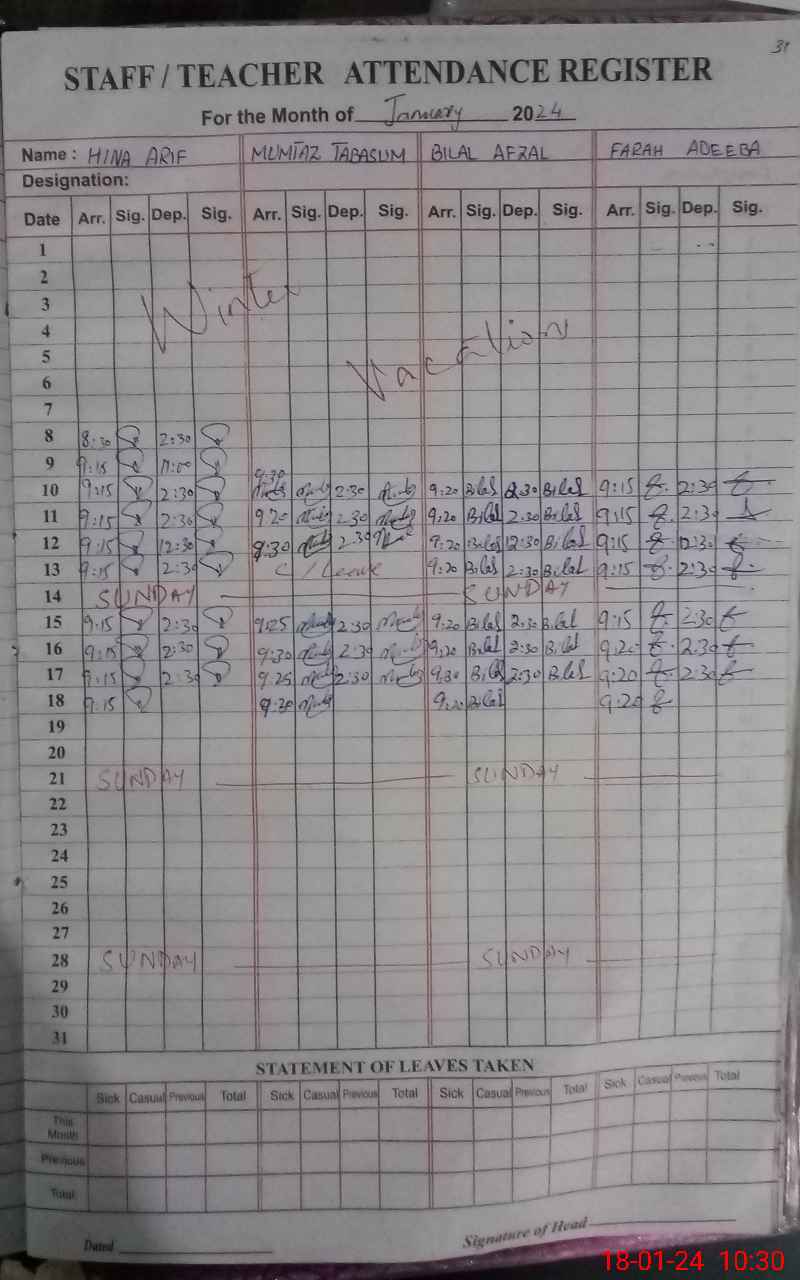 31
STAFF / TEACHER ATTENDANCE REGISTER
For the Month of January 2024
Name : HINA ARIF MUMTAZ TABASUM BILAL AFZAL FARAH ADEEBA
Designation:
Date Arr. Sig. Dep. Sig. Arr. Sig. Dep. Sig. Arr. Sig. Dep. Sig. Arr. Sig. Dep. Sig.
1
2
3 Winter
4 Vacation
5
6
7
8 8:30 2:30
9 9:15 11:00
9:30
10 9:15 2:30 2:30 9:20 Bilal 2:30 Bilal 9:15 2:30
11 9:15 2:30 9:20 2:30 9:20 Bilal 2:30 Bilal 9:15 2:30
12 9:15 12:30 9:30 2:30 9:20 Bilal 12:30 Bilal 9:15 12:30
13 9:15 2:30 C/Leave 9:20 Bilal 2:30 Bilal 9:15 2:30
14 SUNDAY SUNDAY
15 9:15 2:30 9:25 2:30 9:20 Bilal 2:30 Bilal 9:15 2:30
16 9:15 2:30 9:30 2:30 9:20 Bilal 2:30 Bilal 9:20 2:30
17 9:15 2:30 9:25 2:30 9:20 Bilal 2:30 Bilal 9:20 2:30
18 9:15 9:30 9:20 Bilal 9:20
19
20
21 SUNDAY SUNDAY
22
23
24
25
26
27
28 SUNDAY SUNDAY
29
30
31
STATEMENT OF LEAVES TAKEN
Sick Casual Previous Total Sick Casual Previous Total Sick Casual Previous Total Sick Casual Previous Total
This Month
Previous
Total
Dated Signature of Head
18-01-24 10:30